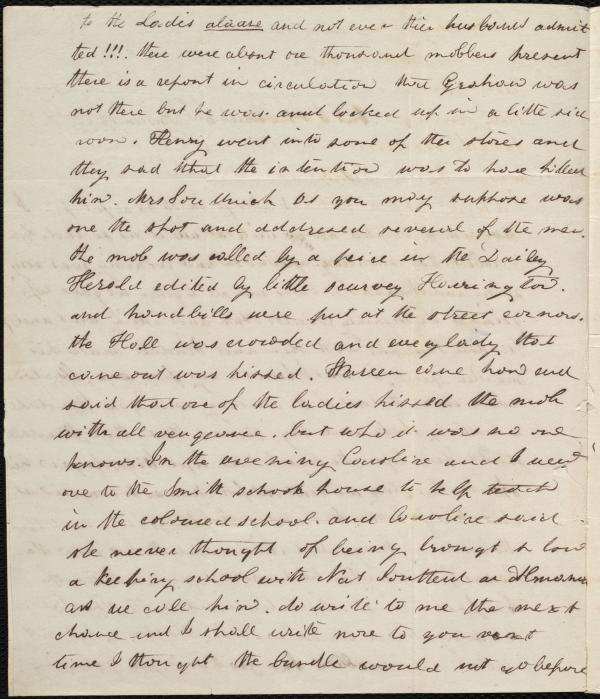 to the Ladies alaare and not even thier husbands admit
ted!!! there were about one thousand mobbers present
there is a report in circulation that Graham was
not there but he was and locked up in a little side
room. Henry went into some of the stores and
they said that the intention was to have killed
him. Mrs Southwick as you may suppose was
one the spot and addressed several of the men.
the mob was called by a peice in the Dailey
Herald edited by little scurvey
and handbills were put at the street cornors.
the Hall was crowded and every lady that
came out was hissed. came home and
said that one of the ladies hissed the mob
with all vengeance. but who it was no one
knows. In the evening Caroline and I went
over to the Smith school house to help teach
in the coloured school. and Caroline said
she never thought of being brought so low
a keeping school with Nat
as we call him. do write to me the next
chance and I shall write more to you next
time I thought the bundle would not go before